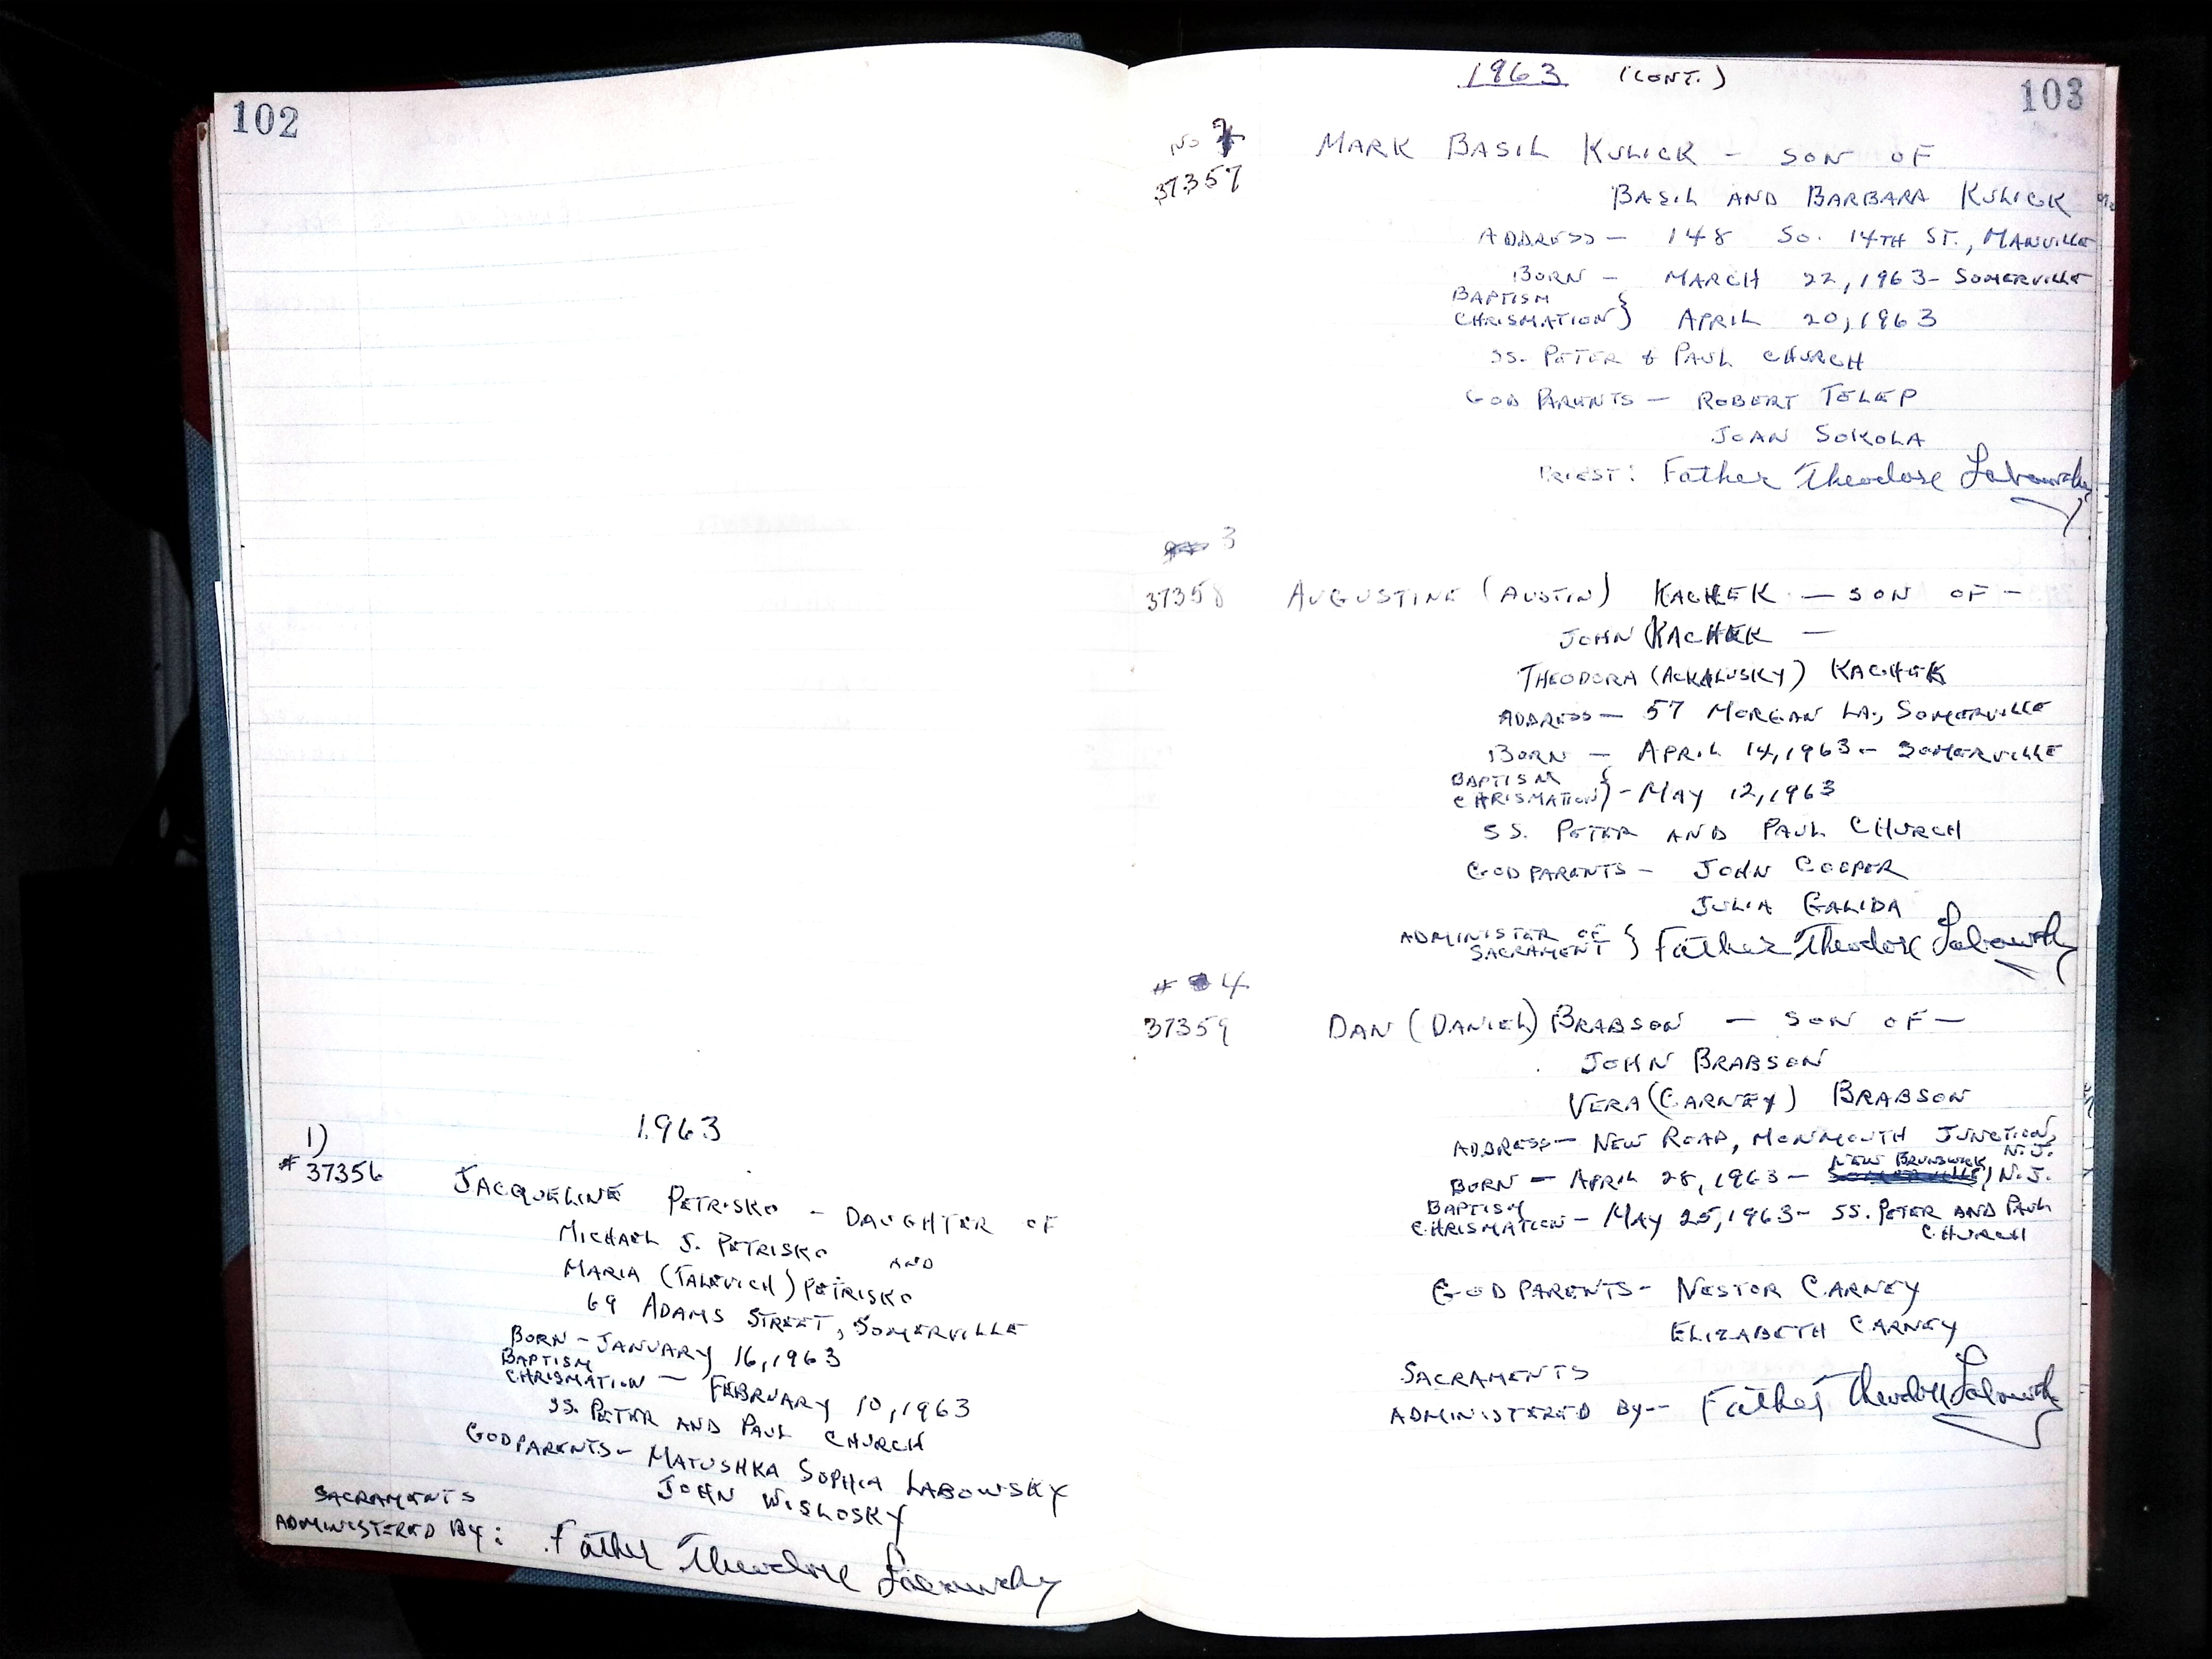 102
1963
1)
# 37356
JACQUELINE PETRISKO - DAUGHTER OF
MICHAEL J. PETRISKO AND
MARIA (TALEVICH) PETRISKO
69 ADAMS STREET, SOMERVILLE
BORN - JANUARY 16, 1963
BAPTISM
CHRISMATION — FEBRUARY 10, 1963
SS. PETER AND PAUL CHURCH
GODPARENTS - MATUSHKA SOPHIA LABOWSKY
JOHN WISLOSKY
SACRAMENTS
ADMINISTERED BY: Father Theodore Labowsky
1963 (CONT.) 103
No 2
37357
MARK BASIL KULICK - SON OF
BASIL AND BARBARA KULICK
ADDRESS - 148 SO. 14TH ST., MANVILLE
BORN - MARCH 22, 1963 - SOMERVILLE
BAPTISM
CHRISMATION } APRIL 20, 1963
SS. PETER & PAUL CHURCH
GOD PARENTS - ROBERT TELEP
JOAN SOKOLA
PRIEST: Father Theodore Labowsky
3
37358
AUGUSTINE (AUSTIN) KACHEK — SON OF -
JOHN KACHEK —
THEODORA (ACKALUSKY) KACHEK
ADDRESS - 57 MORGAN LA., SOMERVILLE
BORN - APRIL 14, 1963 - SOMERVILLE
BAPTISM
CHRISMATION } - MAY 12, 1963
SS. PETER AND PAUL CHURCH
GODPARENTS - JOHN COOPER
JULIA GALIDA
ADMINISTER OF
SACRAMENT } Father Theodore Labowsky
# 4
37359
DAN (DANIEL) BRABSON — SON OF —
JOHN BRABSON
VERA (CARNEY) BRABSON
ADDRESS - NEW ROAD, MONMOUTH JUNCTION,
N.J.
BORN - APRIL 28, 1963 - NEW BRUNSWICK, N.J.
BAPTISM
CHRISMATION - MAY 25, 1963 - SS. PETER AND PAUL
CHURCH
GODPARENTS - NESTOR CARNEY
ELIZABETH CARNEY
SACRAMENTS
ADMINISTERED BY -- Father Theodore Labowsky